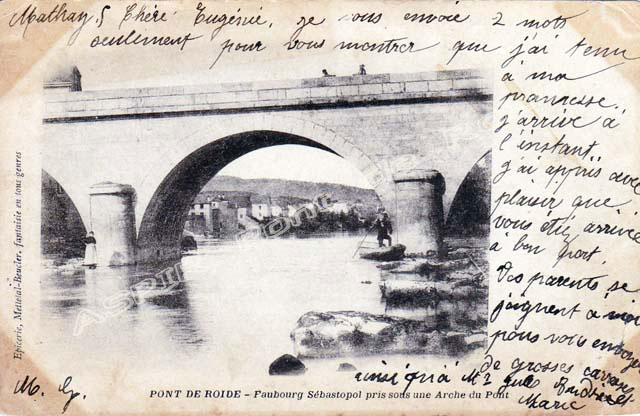 Mathay, 5 Chère Eugénie, je vous envoie 2 mots
seulement pour vous montrer que j'ai tenu
à ma
promesse.
J'arrive à
l'instant
j'ai appris avec
plaisir que
vous etie arrivée
à bon port.
Vos parents se
joignent à moi
pour vous envoyer
de grosses
ainsi qu'à
Marie
M. G.
Epicerie, Mettetal-Beucler, fantaisie en tous genres
PONT DE ROIDE - Faubourg Sébastopol pris sous une Arche du Pont